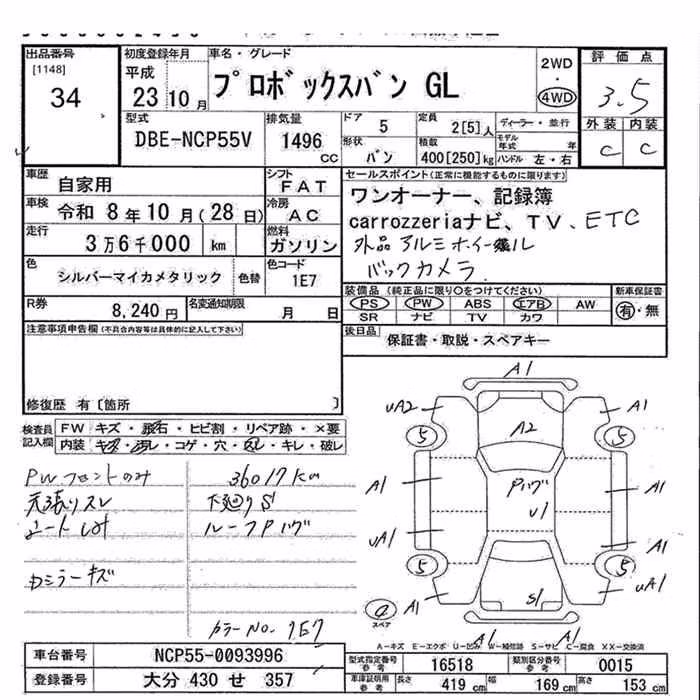 出品番号
[1148]
34
初度登録年月
平成
23 10 月
車名・グレード
プロボックスバン GL
2WD
・
4WD
評価点
3.5
外装 内装
C C
型式
DBE-NCP55V
排気量
1496 CC
ドア 5
形状 バン
定員 2[5]人
積載 400[250]kg
ディーラー・並行
モデル年式 年
ハンドル 左・右
車歴 自家用
車検 令和 8年10月(28日)
走行 3万6千000 km
シフト FAT
冷房 AC
燃料 ガソリン
セールスポイント(正常に機能するものに限ります)
ワンオーナー、記録簿
carrozzeriaナビ、TV、ETC
外品アルミホイール
バックカメラ
色 シルバーマイカメタリック 色替
色コード 1E7
R券 8,240円
名変通知期限 月 日
装備品(純正品に限り○をつけてください)
PS PW ABS エアB AW
SR ナビ TV カワ
新車保証書
有・無
後日品 保証書・取説・スペアキー
注意事項申告欄(不具合内容等は具体的に記入して下さい)
修復歴 有〔箇所 〕
検査員記入欄
FW キズ・飛石・ヒビ割・リペア跡・×要
内装 キズ・汚レ・コゲ・穴・スレ・キレ・破レ
PWフロントのみ 36017km
天張りスレ 下廻りS
シートシミ ルーフPハゲ
Dミラーキズ
カラーNo. 1E7
A1
uA2 A1
5 A2 5
A1 Pハゲ A1
U1
uA1 A1
5 5
A1 S1 uA1
スペア
A1 A1
A-キズ E-エクボ U-凹み W-補修跡 S-サビ C-腐食 XX-交換済
車台番号 NCP55-0093996
登録番号 大分 430 せ 357
型式指定番号 参考 16518
類別区分番号 参考 0015
車庫証明用 参考 長さ 419 cm 幅 169 cm 高さ 153 cm